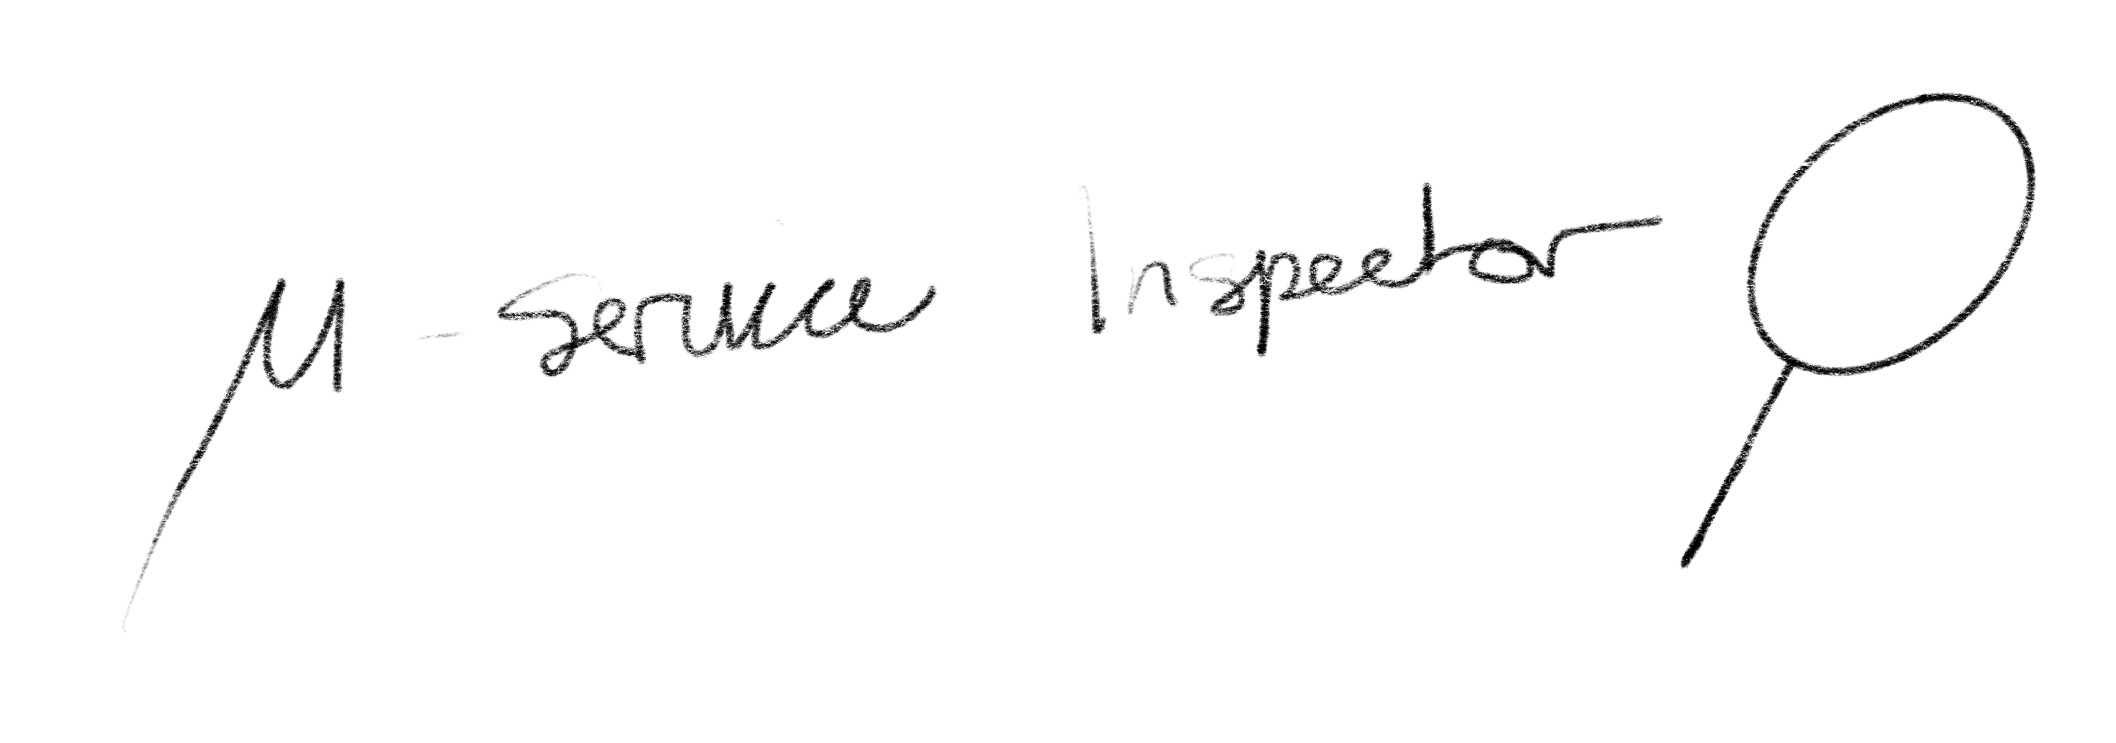 μ-service Inspector